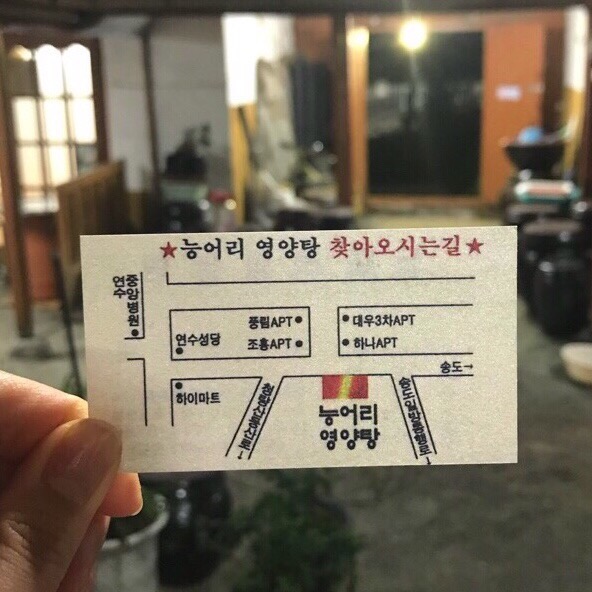 ★능어리 영양탕 찾아오시는길★
연수
중앙병원
풍림APT
대우3차APT
연수성당
조흥APT
하나APT
송도→
하이마트
능어리
영양탕